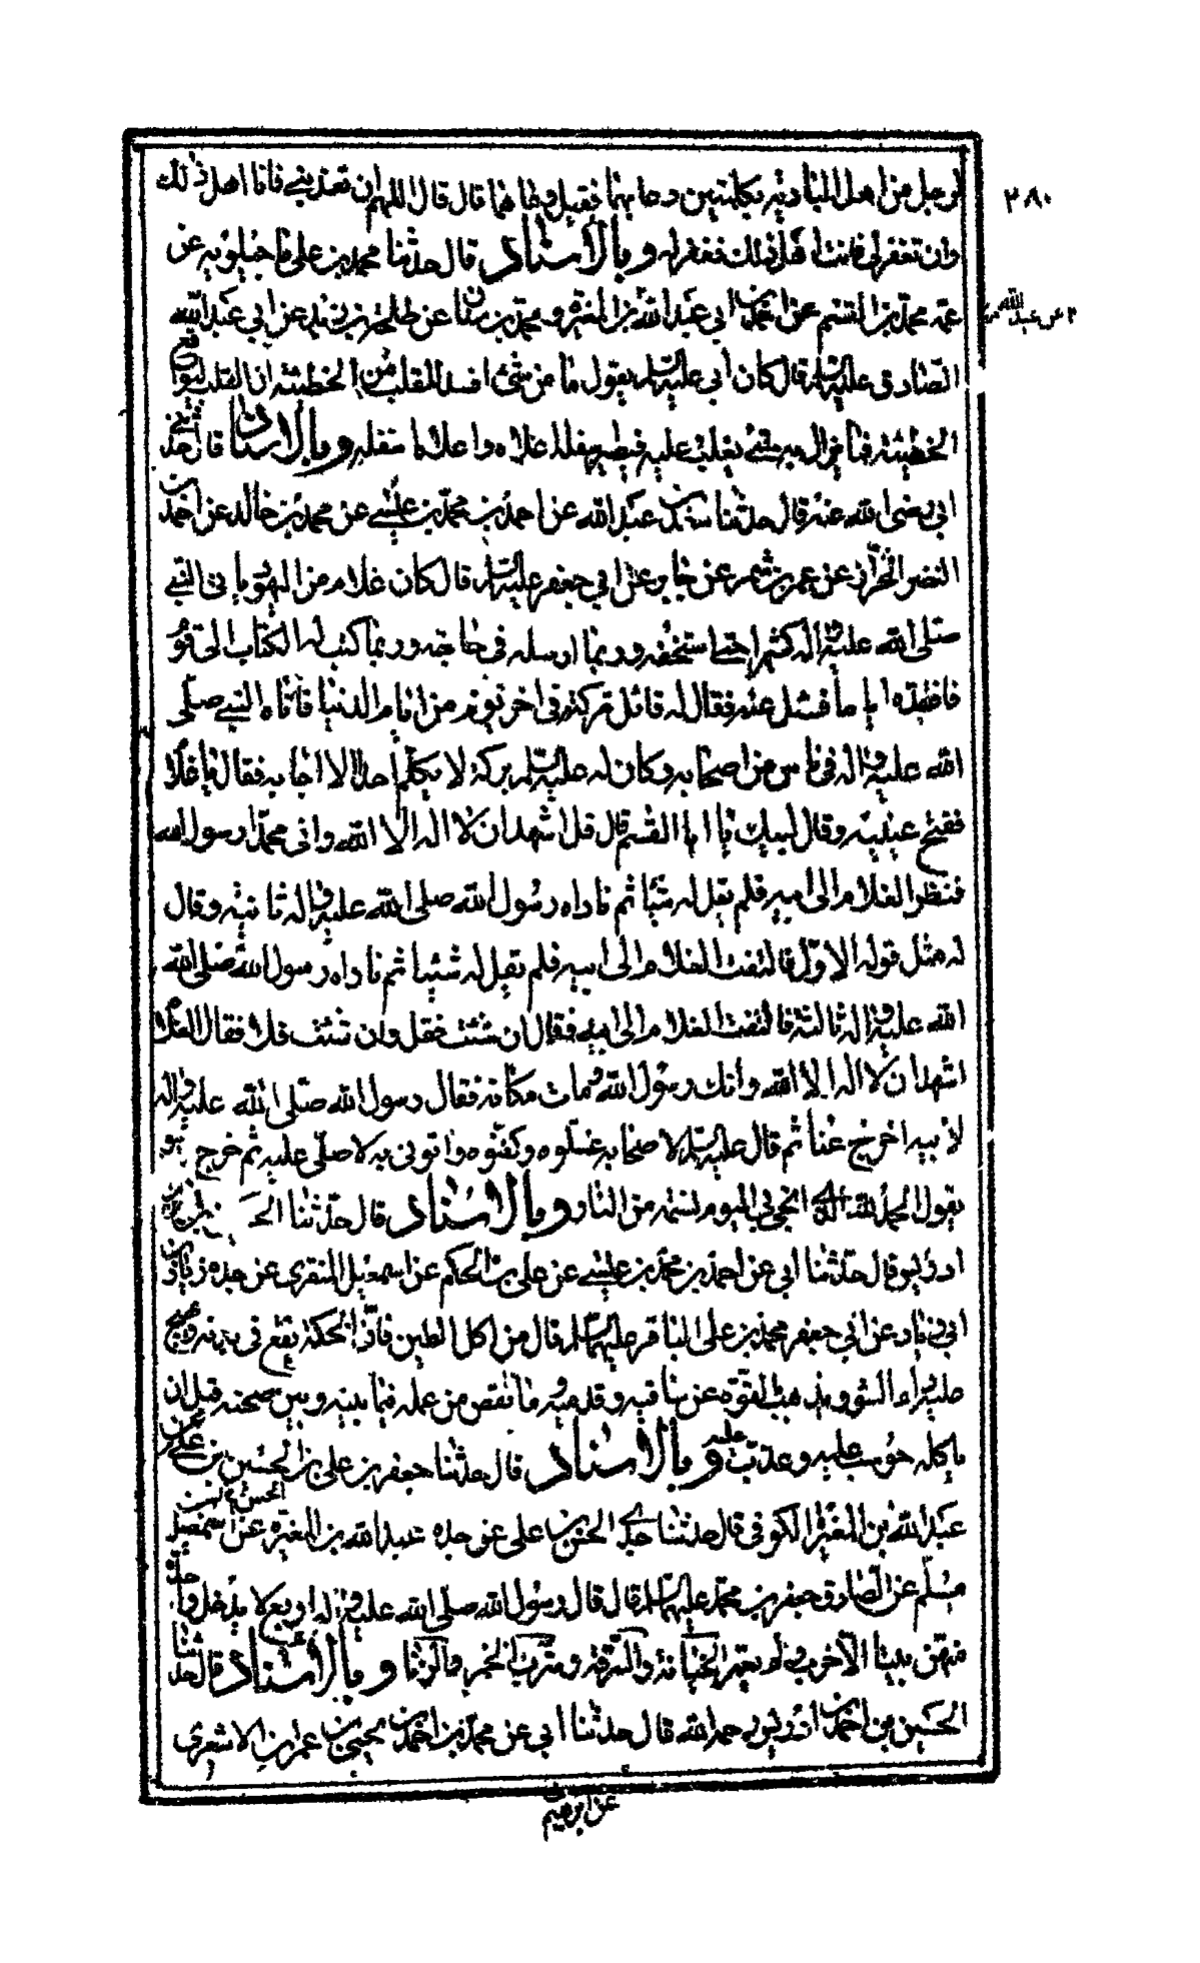 ٢٨٠
لرجل من اهل البادية بكلمتين دعا بهما فقيل وما هما قال قال اللهم ان تعذبني فانا اهل ذلك
وان تغفر لي فانت اهل ذلك فغفر له وبالاسناد قال حدثنا محمد بن علي ماجيلويه عن
عمه محمد بن ابي القسم عن احمد بن ابي عبد الله بن المغيرة ومحمد بن سنان عن طلحة بن زيد عن ابي عبد الله
الصادق عليه السلم قال كان ابي عليه السلم يقول ما من شئ افسد للقلب من الخطيئة ان القلب ليواقع
الخطيئة فما تزال به حتى يغلب عليه فيصير اعلاه واعلاه اسفله وبالاسناد قال حدثني
ابي رضي الله عنه قال حدثنا سعد بن عبد الله عن احمد بن محمد بن عيسى عن محمد بن خالد عن احمد بن
النضر الخزاز عن عمر بن شمر عن جابر عن ابي جعفر عليه السلم قال كان غلام من اليهود ياتي النبي
صلى الله عليه واله كثيرا حتى استخفه وربما ارسله في حاجته وربما كتب له الكتاب الى قوم
فافتقده اياما فسئل عنه فقال له قائل تركته في اخر يوم من ايام الدنيا فاتاه النبي صلى
الله عليه واله في ناس من اصحابه وكان له عليه السلم بركة لا يكلم احدا الا اجابه فقال يا غلام
ففتح عينيه وقال لبيك يا ابا القسم قال قل اشهد ان لا اله الا الله واني محمدا رسول الله
فنظر الغلام الى ابيه فلم يقل له شيئا ثم ناداه رسول الله صلى الله عليه واله ثانية وقال
له مثل قوله الاول فالتفت الغلام الى ابيه فلم يقل له شيئا ثم ناداه رسول الله صلى الله
الله عليه واله ثالثة فالتفت الغلام الى ابيه فقال ان شئت فقل وان شئت فلا فقال الغلام
اشهد ان لا اله الا الله وانك رسول الله ومات مكانه فقال رسول الله صلى الله عليه واله
لابيه اخرج عنا ثم قال عليه السلم لاصحابه غسلوه وكفنوه واتوني به لاصلي عليه ثم خرج وهو
يقول الحمد لله الذي انجى بي اليوم نسمة من النار وبالاسناد قال حدثنا الحسين بن احمد بن
ادريس قال حدثنا ابي عن احمد بن محمد بن عيسى عن علي بن الحكم عن اسمعيل المنقري عن جده زياد بن
ابي زياد عن ابي جعفر محمد بن علي الباقر عليهما السلم قال من اكل الطين فانه الحكة تقع في بدنه ويهيج
عليه داء السوء ويذهب القوة عن ساقيه وقدميه وما نقص من عمله فيما بينه وبين صحته قبل ان
ياكله حوسب عليه وعذب عليه وبالاسناد قال حدثنا جعفر بن علي بن الحسين بن علي بن
عبد الله بن المغيرة الكوفي قال حدثنا جدي الحسن بن علي عن جده عبد الله بن المغيرة عن اسمعيل بن
مسلم عن الصادق جعفر بن محمد عليهما السلم قال قال رسول الله صلى الله عليه واله اربع لا يدخل واحدة
منهن بيتا الا خرب ولم يعمر الخيانة والسرقة وشرب الخمر والزنا وبالاسناد قال حدثنا
الحسين بن احمد بن ادريس رحمه الله قال حدثنا ابي عن محمد بن احمد بن يحيى بن عمران الاشعري
عن ابرهيم